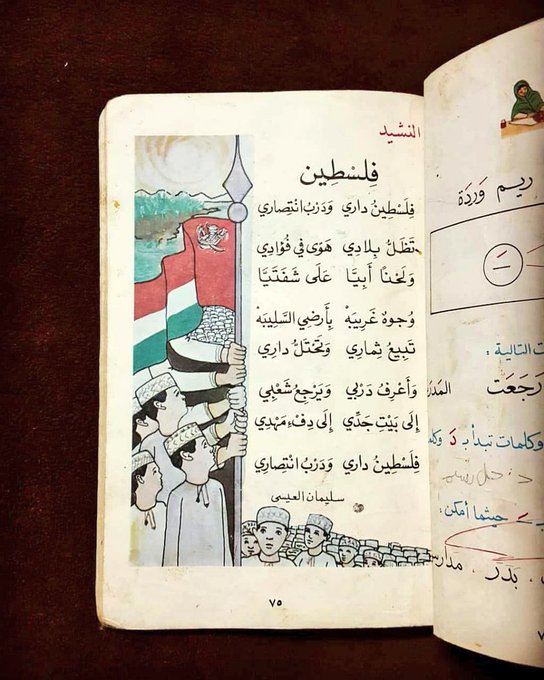 النشيد
فِلِسْطِين
فِلِسْطِينُ دَارِي وَدَرْبُ انْتِصَارِي
تَظَلُّ بِلَادِي هَوًى فِي فُؤَادِي
وَلَحْنًا أَبِيًّا عَلَى شَفَتَيَّا
وُجُوهٌ غَرِيبَهْ بِأَرْضِي السَّلِيبَهْ
تَبِيعُ ثِمَارِي وَتَحْتَلُّ دَارِي
وَأَعْرِفُ دَرْبِي وَيَرْجِعُ شَعْبِي
إِلَى بَيْتِ جَدِّي إِلَى دِفْءِ مَهْدِي
فِلِسْطِينُ دَارِي وَدَرْبُ انْتِصَارِي
سليمان العيسى
٧٥
ريم وَرْدَة
ت التالية :
رَجَعَت المَدرَ
وكلمات تبدأ بـ د وكل
حيثما أمكن .
بَدْر . مدارس